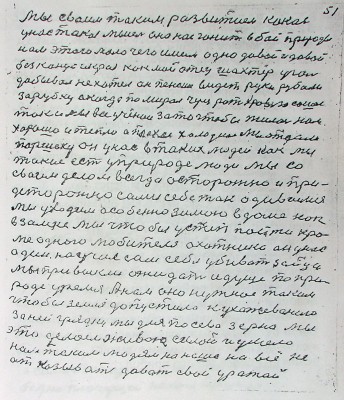 51
Мы своим таким развитием какая
у нас такая мысль она нас гонит в бой природы
нам этого мало чего имеем одно давай и давай
без конца играл как мой отец шахтёр уголь
добывал не хотел он пенсии видеть руки рубали
зарубку а когда помирал через рот кровью
так и мы все учёные за то чтобы жилось нам
хорошо и тепло а плохое холодное мы отдали
он у нас в таких людей как мы
такие есть у природе люди мы со
своим делом всегда осторожно и при-
сторожно сами себе так одевшися
мы уходим особенно зимою в доме как
мы чтобы устеп пойти кро-
ме одного любителя охотника он у нас
один научился сам себя убивать зайца
мы привыкли ожидать идуще по при-
роде время а нам оно нужное таким
чтобы земля допустила к ухаживанию
за ней грядку мы для посева зерна мы
это делаем живою силой и думаем
нам таким людям на наше на всё не
отказывать давать свой урожай